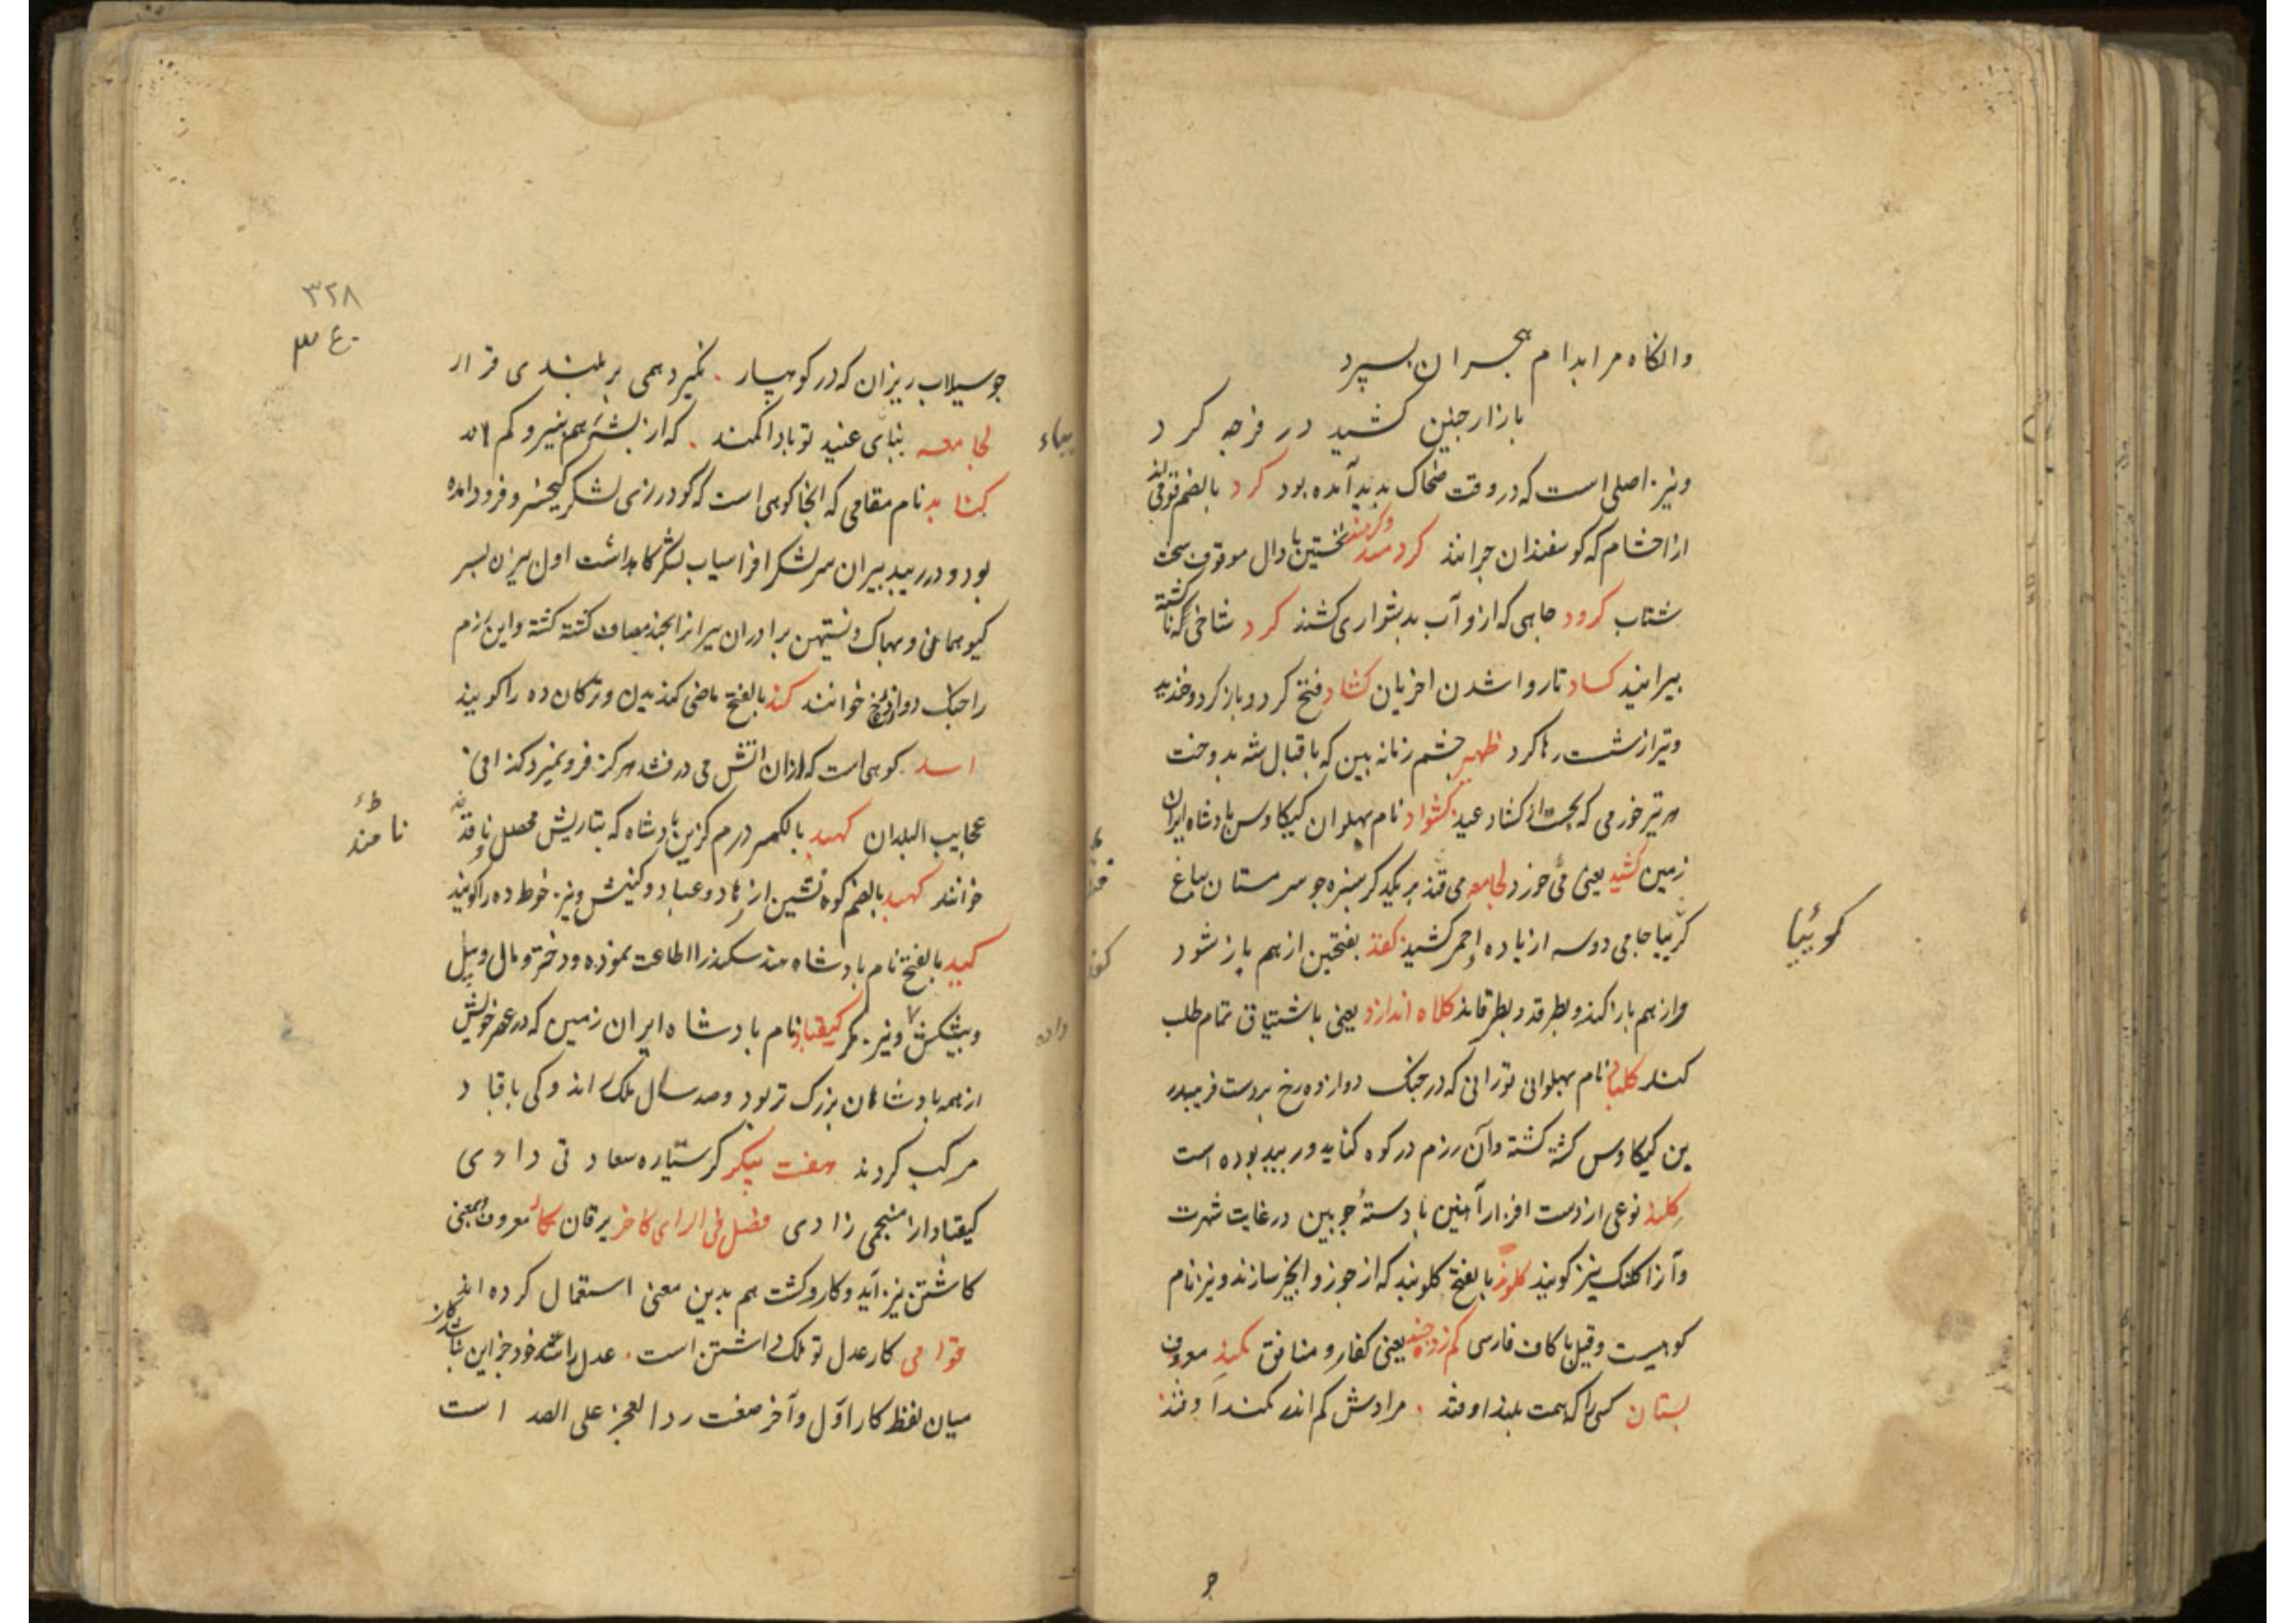 وانکاه مرا بدام هجران بسپرد
بازار جنین کشید در فرجه کرد
ونیز اصلی است که در وقت ضحاک پدید آمده بود کرد بالضم قومی اند
از احشام که کوسفندان جرانند کرد مند وکرمند نخستین با دال موقوف سخت
شتاب کرود جاهی که ازو آب بدشواری کشند کرد شاخی که نا کشته
بیرانید کساد ناروا شدن اخریان کشاد فتح کرد و باز کرد و خندید
وتیر از شست رها کرد ظهیر جشم زمانه بین که باقبال شه بدوخت
هر تیر خورمی که کشاد عید کشواد نام پهلوان کیکاوس بادشاه ایران
زمین کشید یعنی می خورد لجامعه می فتد بر یکدکر سبزه جو سرمستان بباغ
کوییا جامی دو سه از باده احمر کشید کفد بفتحتین از هم باز شود
واز هم باز کند و بطرقد و بطرقاند کلاه اندازد یعنی باشتیاق تمام طلب
کند کلباد نام پهلوانی تورانی که در جنک دوازده رخ بر دست فریبدر
بن کیکاوس کشته کشته وآن رزم در کوه کنابد و ریبد بوده است
کلند نوعی از دست افزار آهنین با دستهٔ جوبین در غایت شهرت
وآنرا کلنک نیز کویند کلوند بالفتح کلوبند که از جوز و انجیر سازند و نیز نام
کوهیست وقیل با کاف فارسی کم زده جند یعنی کفار و منافق کمند معروف
بستان کسی را که همت بلند اوفتد مرادش کم اندر کمند اوفتد
کوییا
جو سیلاب ریزان که در کوهسار نکیرد همی بر بلندی قرار
لجامعه بنای عنید تو باد اکمند که از بشه هم بنیرو کم اند
کنابد نام مقامی که انجا کوهی است که کودرز لشکر کیخسرو فرود آمده
بود و در ریبد بیران سر لشکر افراسیاب لشکرکاه داشت اول بیژن بسر
کیو هماعن و لهاک ونستیهن برادران بیران را بجند مصاف کشته کشته واین رزم
را جنک دوازده رخ خوانند کند بالفتح ماضی کندیدن و ترکان ده را کویند
اسد کوهی است که ازان آتش می درفشد هر کز فرو نمیرد کذا فی
عجایب البلدان کهبد بالکسر درم کزین بادشاه که بتازیش محصل و ناقد
خوانند کهبد بالضم کوه نشین از زهاد و عباد و کنیش و نیز خوط ده را کویند
کید بالفتح نام بادشاه هند سکندر را اطاعت نموده و دختر و مال و پیل
وپیشکش ونیز مکر کیقباد نام بادشاه ایران زمین که در عصر خویش
از همه بادشاهان بزرک تر بود وصد سال ملک راند و کی باقباد
مرکب کردند هفت پیکر کر ستاره سعادتی دادی
کیقباد از منجمی زادی فصل فی الرای کاخر یرقان کار معروف بمعنی
کاشتن نیز آید و کار و کشت هم بدین معنی استعمال کرده اند
قوامی کار عدل تو ملک داشتن است عدل را خود جز این نباشد کار
میان لفظ کار اول وآخر صنعت رد العجز علی الصدر است
نامند
داده
۳۲۸